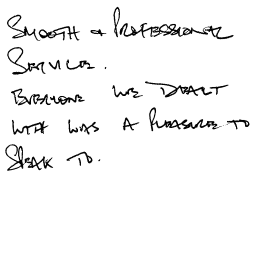 SMOOTH & PROFESSIONAL
SERVICE.
EVERYONE WE DEALT
WITH WAS A PLEASURE TO
SPEAK TO.